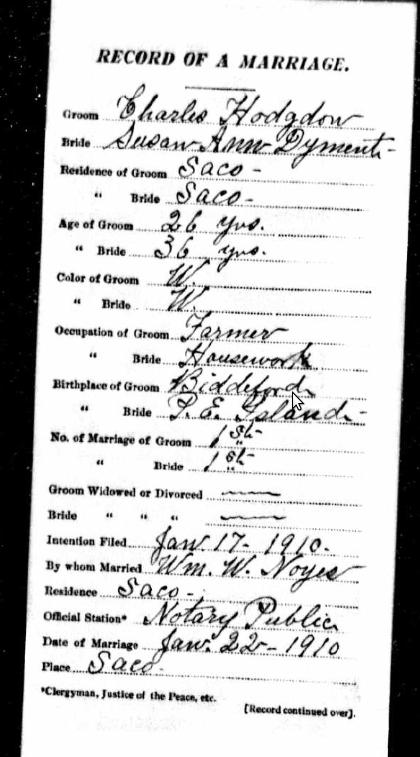 RECORD OF A MARRIAGE.
Groom Charles Hodgdon
Bride Susan Ann Dyment-
Residence of Groom Saco-
" Bride Saco-
Age of Groom 26 yrs.
" Bride 36 yrs.
Color of Groom W.
" Bride W.
Occupation of Groom Farmer
" Bride Housework
Birthplace of Groom Biddeford
" Bride P. E. Island-
No. of Marriage of Groom 1st
" Bride 1st
Groom Widowed or Divorced
Bride " " "
Intention Filed Jan. 17-1910.
By whom Married Wm. W. Noyes
Residence Saco-
Official Station* Notary Public
Date of Marriage Jan. 22-1910
Place Saco-
*Clergyman, Justice of the Peace, etc.
[Record continued over].